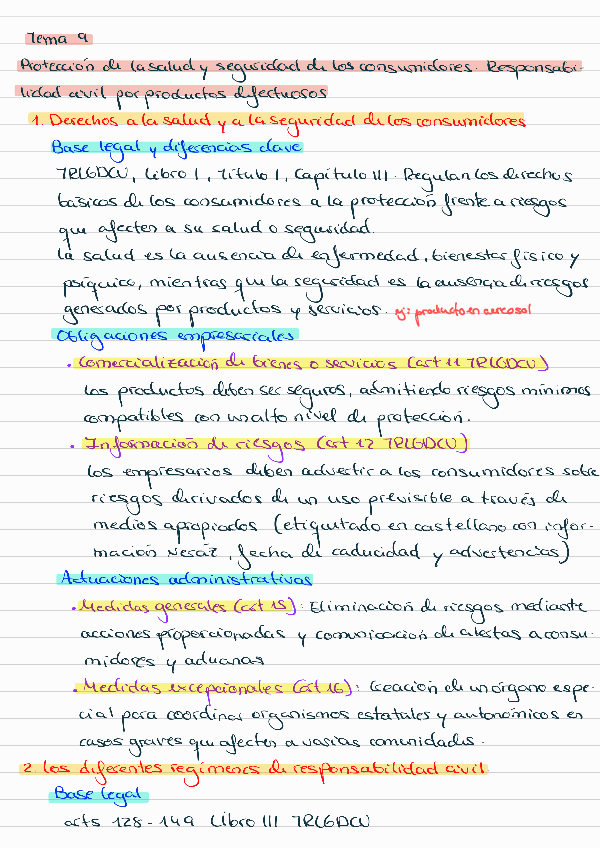 Tema 9
Protección de la salud y seguridad de los consumidores. Responsabi-
lidad civil por productos defectuosos
1. Derechos a la salud y a la seguridad de los consumidores
Base legal y diferencias clave
TRLGDCU, Libro I, Título I, Capítulo III. Regulan los derechos
básicos de los consumidores a la protección frente a riesgos
que afecten a su salud o seguridad.
La salud es la ausencia de enfermedad, bienestar físico y
psíquico, mientras que la seguridad es la ausencia de riesgos
generados por productos y servicios. ej: producto en aerosol
Obligaciones empresariales
• Comercialización de bienes o servicios (art 11 TRLGDCU)
Los productos deben ser seguros, admitiendo riesgos mínimos
compatibles con un alto nivel de protección.
• Información de riesgos (art 12 TRLGDCU)
Los empresarios deben advertir a los consumidores sobre
riesgos derivados de un uso previsible a través de
medios apropiados (etiquetado en castellano con infor-
mación necaz, fecha de caducidad y advertencias)
Actuaciones administrativas
• Medidas generales (art 15): Eliminación de riesgos mediante
acciones proporcionadas y comunicación de alertas a consu-
midores y aduanas
• Medidas excepcionales (art 16): Creación de un órgano espe-
cial para coordinar organismos estatales y autonómicos en
casos graves que afecten a varias comunidades.
2. Los diferentes regímenes de responsabilidad civil
Base legal
arts 128-149 Libro III TRLGDCU